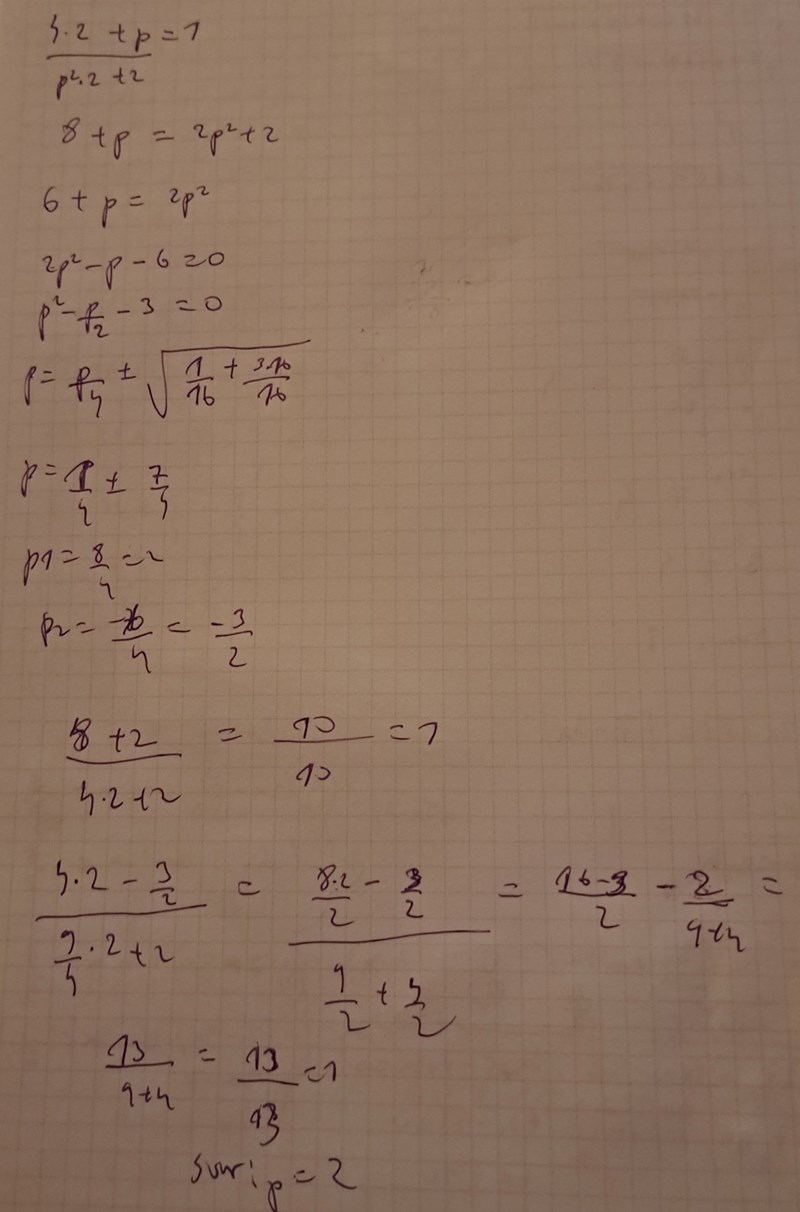 4·2 + p = 1
p²·2 + 2
8 + p = 2p² + 2
6 + p = 2p²
2p² - p - 6 = 0
p² - p/2 - 3 = 0
p = p/4 ± √(1/16 + 3·16/16)
p = 1/4 ± 7/4
p1 = 8/4 = 2
p2 = -6/4 = -3/2
(8 + 2)/(4·2 + 2) = 10/10 = 1
(4·2 - 3/2)/(9/4 · 2 + 2) = (8·2/2 - 3/2)/(9/2 + 4/2) = (16-3)/2 - 2/(9+4) =
13/(9+4) = 13/13 = 1
svar: p = 2